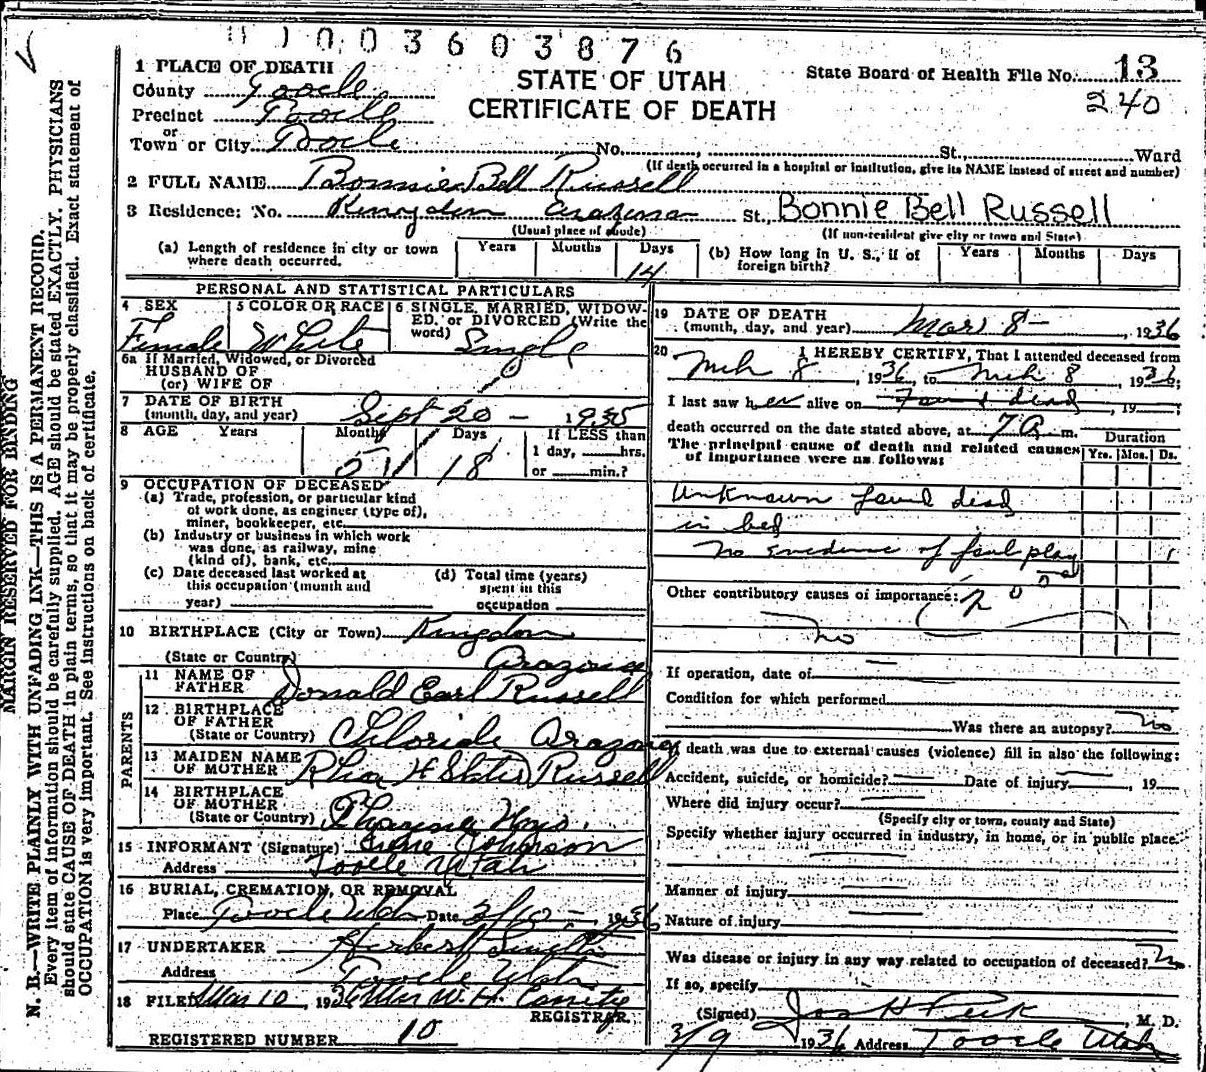 1003603876
1 PLACE OF DEATH
County Tooele
Precinct Tooele
or
Town or City Tooele No. , St., Ward
STATE OF UTAH
CERTIFICATE OF DEATH
State Board of Health File No. 13
240
(If death occurred in a hospital or institution, give its NAME instead of street and number)
2 FULL NAME Bonnie Bell Russell
3 Residence: No. St., Bonnie Bell Russell
(Usual place of abode) (If non-resident give city or town and State)
(a) Length of residence in city or town where death occurred. Years Months Days 14
(b) How long in U. S., if of foreign birth? Years Months Days
PERSONAL AND STATISTICAL PARTICULARS
4 SEX Female
5 COLOR OR RACE White
6 SINGLE, MARRIED, WIDOWED, or DIVORCED (Write the word) Single
6a If Married, Widowed, or Divorced
HUSBAND OF
(or) WIFE OF
7 DATE OF BIRTH
(month, day, and year) Sept 20 - 1935
8 AGE Years Months Days If LESS than
5 18 1 day, hrs.
or min.?
9 OCCUPATION OF DECEASED
(a) Trade, profession, or particular kind
of work done, as engineer (type of),
miner, bookkeeper, etc.
(b) Industry or business in which work
was done, as railway, mine
(kind of), bank, etc.
(c) Date deceased last worked at
this occupation (month and
year)
(d) Total time (years)
spent in this
occupation
10 BIRTHPLACE (City or Town)
(State or Country) Arazona
PARENTS
11 NAME OF
FATHER Donald Earl Russell
12 BIRTHPLACE
OF FATHER
(State or Country) Chloride Arazona
13 MAIDEN NAME
OF MOTHER H Russell
14 BIRTHPLACE
OF MOTHER
(State or Country)
15 INFORMANT (Signature) Johnson
Address Tooele Utah
16 BURIAL, CREMATION, OR REMOVAL
Place Tooele Utah Date 3/10 - 1936
17 UNDERTAKER Herbert
Address Tooele Utah
18 FILED Mar 10, 1936 W. H.
REGISTRAR
REGISTERED NUMBER 10
19 DATE OF DEATH
(month, day, and year) Mar 8 - , 1936
20 I HEREBY CERTIFY, That I attended deceased from
Mch 8, 1936, to Mch 8, 1936;
I last saw her alive on Found dead, 19 ;
death occurred on the date stated above, at 7 A m.
The principal cause of death and related causes
of importance were as follows:
Duration
Yrs. Mos. Ds.
Unknown found dead
in bed
No evidence of foul play
Other contributory causes of importance:
no
If operation, date of
Condition for which performed
Was there an autopsy? No
If death was due to external causes (violence) fill in also the following:
Accident, suicide, or homicide? Date of injury , 19
Where did injury occur?
(Specify city or town, county and State)
Specify whether injury occurred in industry, in home, or in public place.
Manner of injury
Nature of injury
Was disease or injury in any way related to occupation of deceased? No
If so, specify
(Signed) Jos H Peck, M. D.
3/9 1936 Address Tooele Utah
MARGIN RESERVED FOR BINDING
N. B.—WRITE PLAINLY WITH UNFADING INK—THIS IS A PERMANENT RECORD.
Every item of information should be carefully supplied. AGE should be stated EXACTLY. PHYSICIANS
should state CAUSE OF DEATH in plain terms, so that it may be properly classified. Exact statement of
OCCUPATION is very important. See instructions on back of certificate.